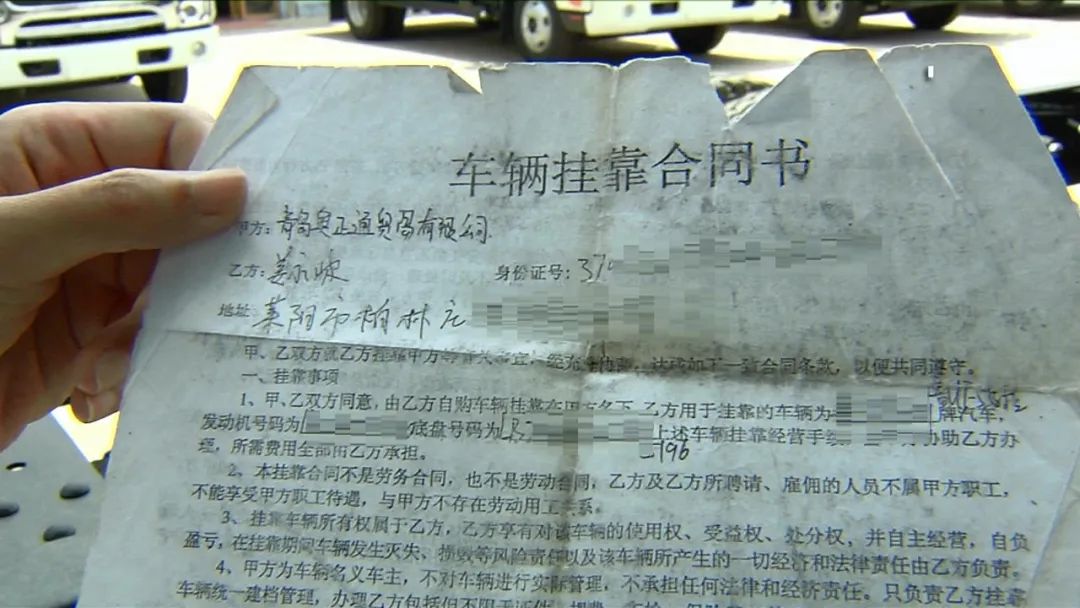 车辆挂靠合同书
甲方：青岛奥正通贸易有限公司
乙方：姜 身份证号：37
地址 莱阳市柏林庄
甲、乙双方就乙方挂靠甲方 事宜，经充分协商，达成如下一致合同条款，以便共同遵守。
一、挂靠事项
1、甲、乙双方同意，由乙方自购车辆挂靠在甲方名下，乙方用于挂靠的车辆为 牌汽车，
发动机号码为 底盘号码为 上述车辆挂靠经营手续 协助乙方办
796
理，所需费用全部由乙方承担。
2、本挂靠合同不是劳务合同，也不是劳动合同，乙方及乙方所聘请、雇佣的人员不属甲方职工，
不能享受甲方职工待遇，与甲方不存在劳动用工关系。
3、挂靠车辆所有权属于乙方，乙方享有对该车辆的使用权、受益权、处分权，并自主经营，自负
盈亏，在挂靠期间车辆发生灭失、损毁等风险责任以及该车辆所产生的一切经济和法律责任由乙方负责。
4、甲方为车辆名义车主，不对车辆进行实际管理，不承担任何法律和经济责任。只负责乙方挂靠
车辆统一建档管理，办理乙方包括但不限于证件